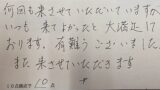 何回も来させていただいていますが
いつも 来てよかったと大満足して
おります。有難うございました
また来させていただきます
10点満点で 10 点